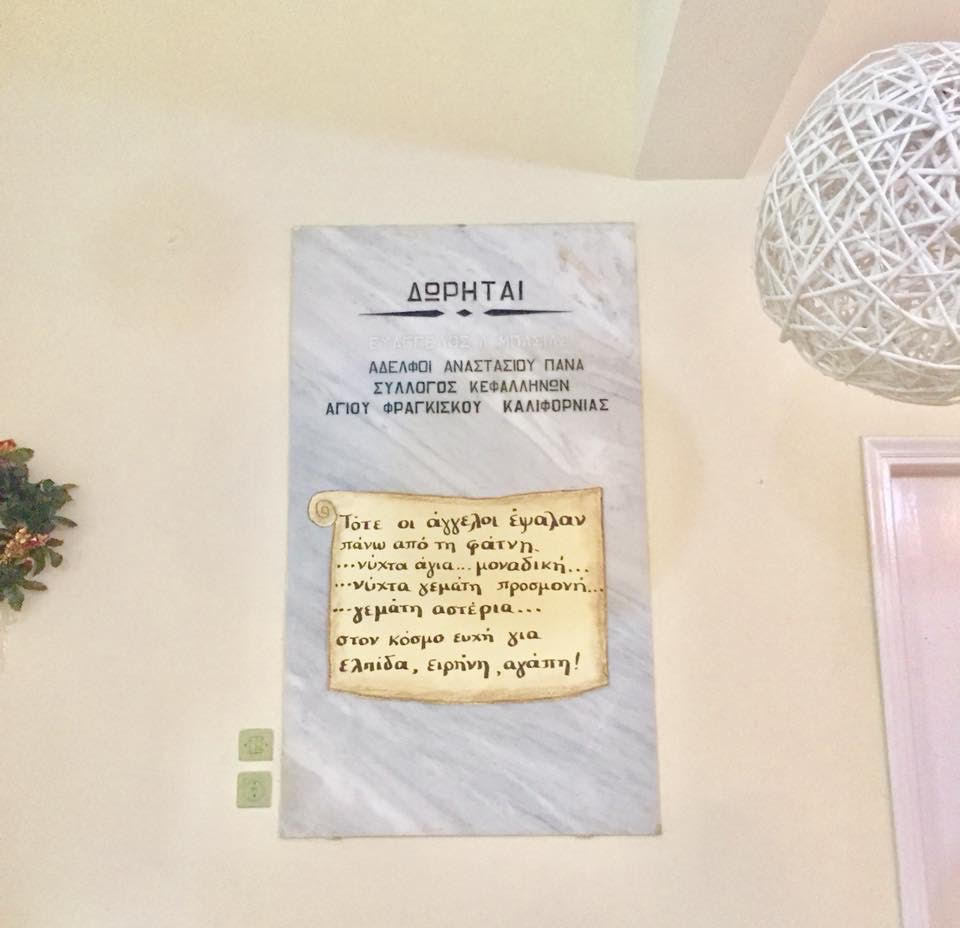 ΔΩΡΗΤΑΙ
ΕΥΑΓΓΕΛΟΣ
ΑΔΕΛΦΟΙ ΑΝΑΣΤΑΣΙΟΥ ΠΑΝΑ
ΣΥΛΛΟΓΟΣ ΚΕΦΑΛΛΗΝΩΝ
ΑΓΙΟΥ ΦΡΑΓΚΙΣΚΟΥ ΚΑΛΙΦΟΡΝΙΑΣ
Τότε οι άγγελοι έψαλαν
πάνω από τη φάτνη.
...νύχτα άγια... μοναδική...
...νύχτα γεμάτη προσμονή...
...γεμάτη αστέρια...
στον κόσμο ευχή για
ελπίδα, ειρήνη, αγάπη!